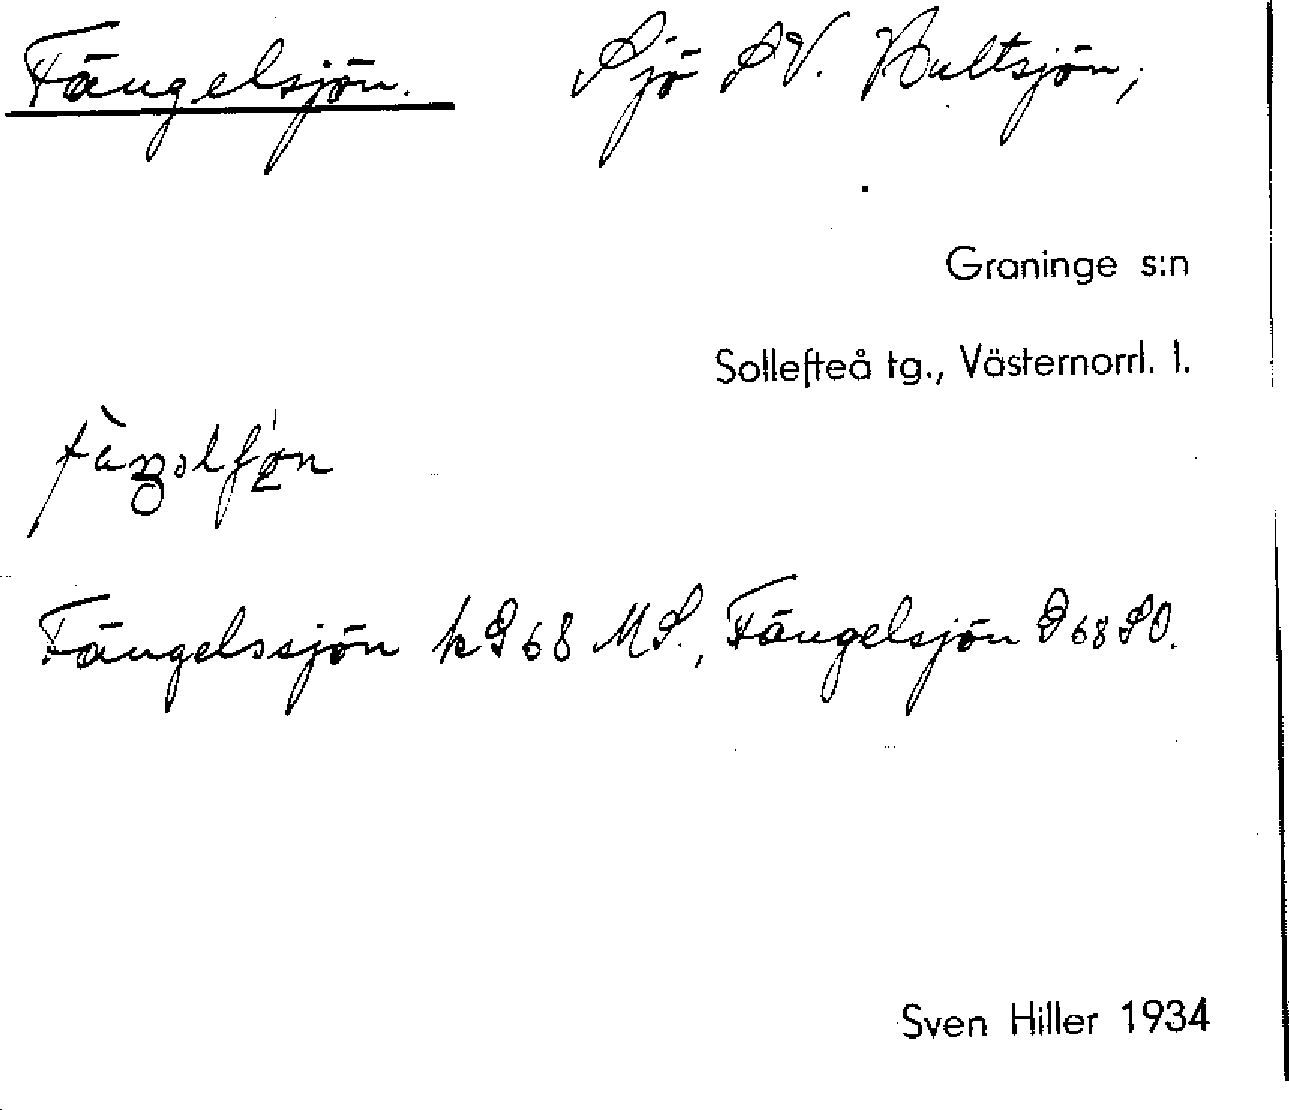 Fängelsjön. Sjö SV. Bultsjön,
Graninge s:n
Sollefteå tg., Västernorrl. l.
Fängelssjön k G 68 MS., Fängelsjön G 68 SO.
Sven Hiller 1934